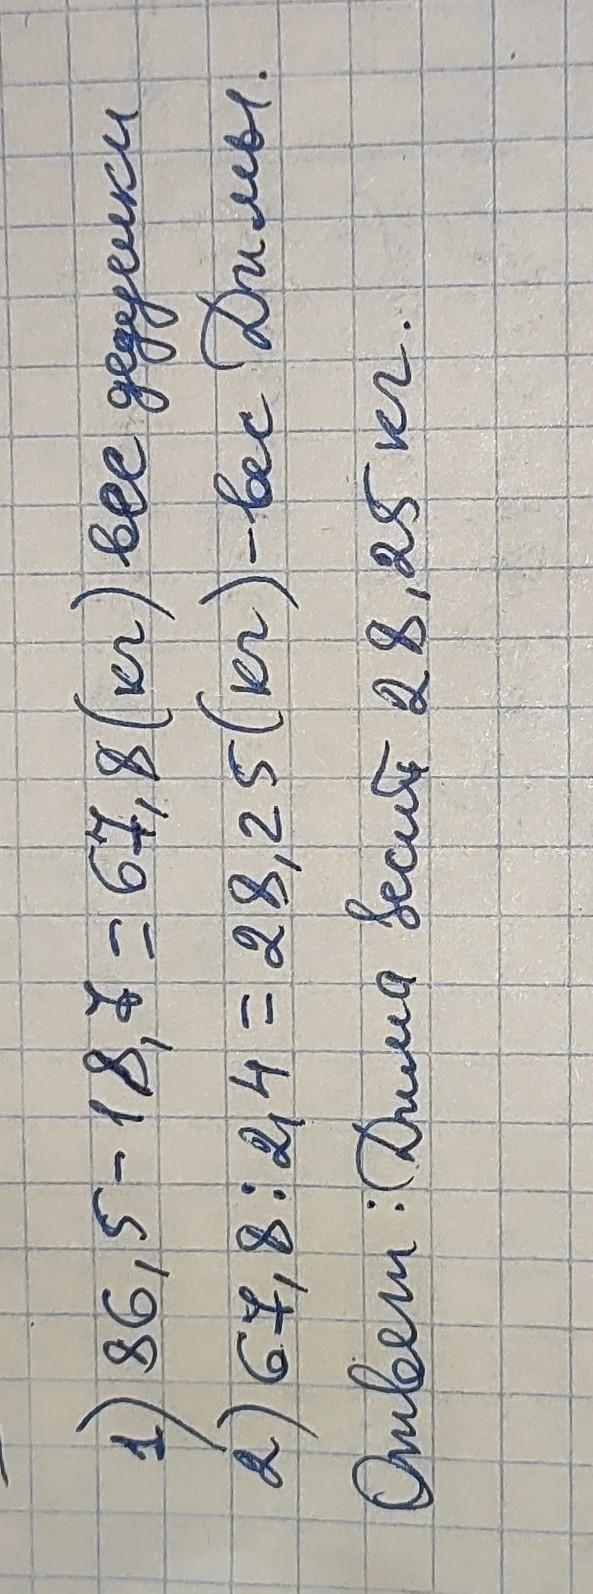 1) 86,5 - 18,7 = 67,8 (кг) вес дедушки
2) 67,8 : 2,4 = 28,25 (кг) - вес Димы.
Ответ: Дима весит 28,25 кг.